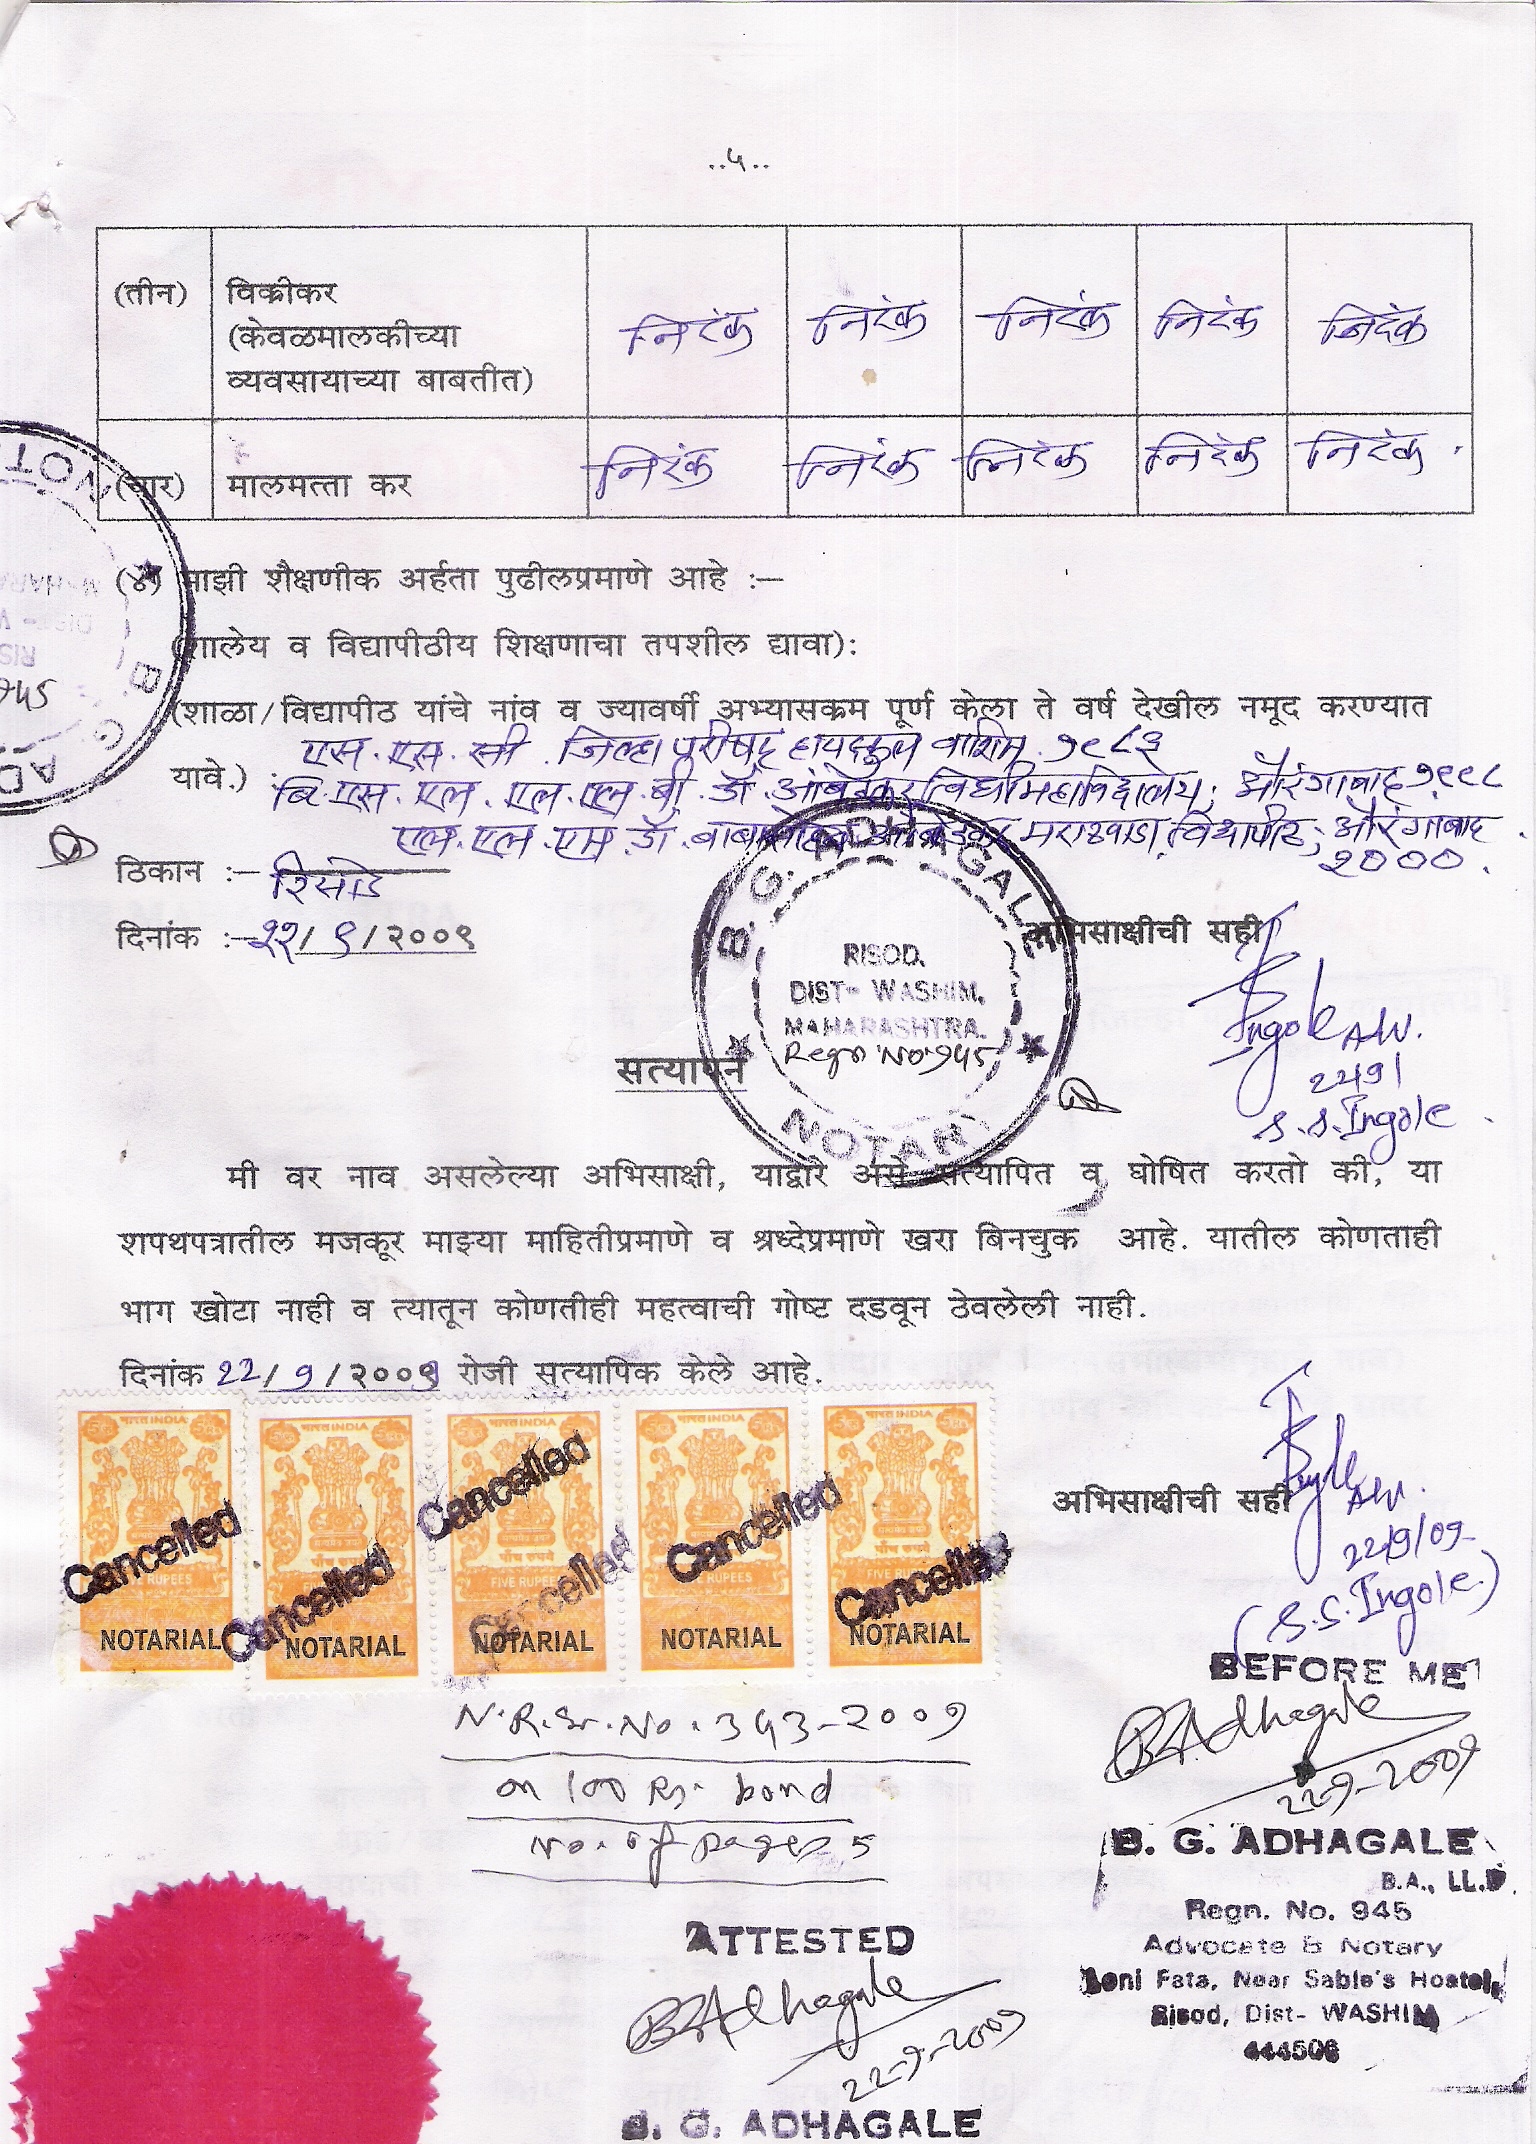 ..५..
(तीन) विक्रीकर
(केवळमालकीच्या
व्यवसायाच्या बाबतीत)
निरंक निरंक निरंक निरंक निरंक
(चार) मालमत्ता कर निरंक निरंक निरंक निरंक निरंक
(४) माझी शैक्षणीक अर्हता पुढीलप्रमाणे आहे :—
(शालेय व विद्यापीठीय शिक्षणाचा तपशील द्यावा):
(शाळा/विद्यापीठ यांचे नांव व ज्यावर्षी अभ्यासक्रम पूर्ण केला ते वर्ष देखील नमूद करण्यात
एस. एस. सी. जिल्हा परीषद हायस्कुल वाशिम. १९८३
यावे.) :
बि. एस. एल. एल. एल. बी. डॉ. आंबेडकर विधीमहाविद्यालय; औरंगाबाद १९९८
एल. एल. एम. डॉ. बाबासाहेब आंबेडकर मराठवाडा विद्यापीठ; औरंगाबाद
२०००.
ठिकान :— रिसोड
दिनांक :— २२/९/२००९
अभिसाक्षीची सही
Ingole A.W.
2291
S.S. Ingole
B. G. ADHAGALE
RISOD.
DIST- WASHIM,
MAHARASHTRA.
Regn No. 945
NOTARY
सत्यापन
मी वर नाव असलेल्या अभिसाक्षी, याद्वारे असे सत्यापित व घोषित करतो की, या
शपथपत्रातील मजकूर माझ्या माहितीप्रमाणे व श्रध्देप्रमाणे खरा बिनचुक आहे. यातील कोणताही
भाग खोटा नाही व त्यातून कोणतीही महत्वाची गोष्ट दडवून ठेवलेली नाही.
दिनांक 22/9/२००9 रोजी सत्यापिक केले आहे.
भारत INDIA भारत INDIA भारत INDIA भारत INDIA भारत INDIA
Cancelled Cancelled Cancelled Cancelled Cancelled Cancelled
पाँच रुपये
FIVE RUPEES
NOTARIAL NOTARIAL NOTARIAL NOTARIAL NOTARIAL
अभिसाक्षीची सही
22/9/09
(S.S. Ingole)
BEFORE ME
BGAdhagale
22-9-2009
N.R.Sr.No. 343-2009
on 100 Rs. bond
No. of pages 5
B. G. ADHAGALE
B.A., LL.B
Regn. No. 945
Advocate & Notary
Loni Fata, Near Sable's Hostel,
Risod, Dist- WASHIM
444506
ATTESTED
BGAdhagale
22-9-2009
B. G. ADHAGALE